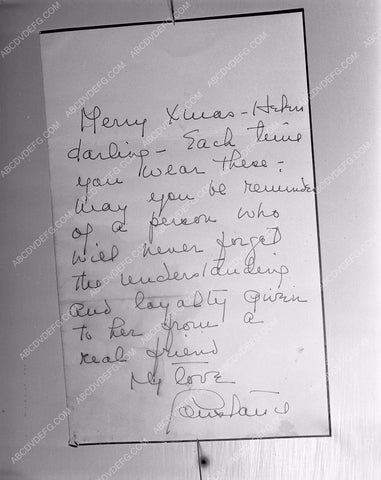 Merry Xmas - Helen
darling - Each time
you wear these -
may you be reminded
of a person who
will never forget
the understanding
and loyalty given
to her from a
real friend
My love
Constance
ABCDVDFEG.COM